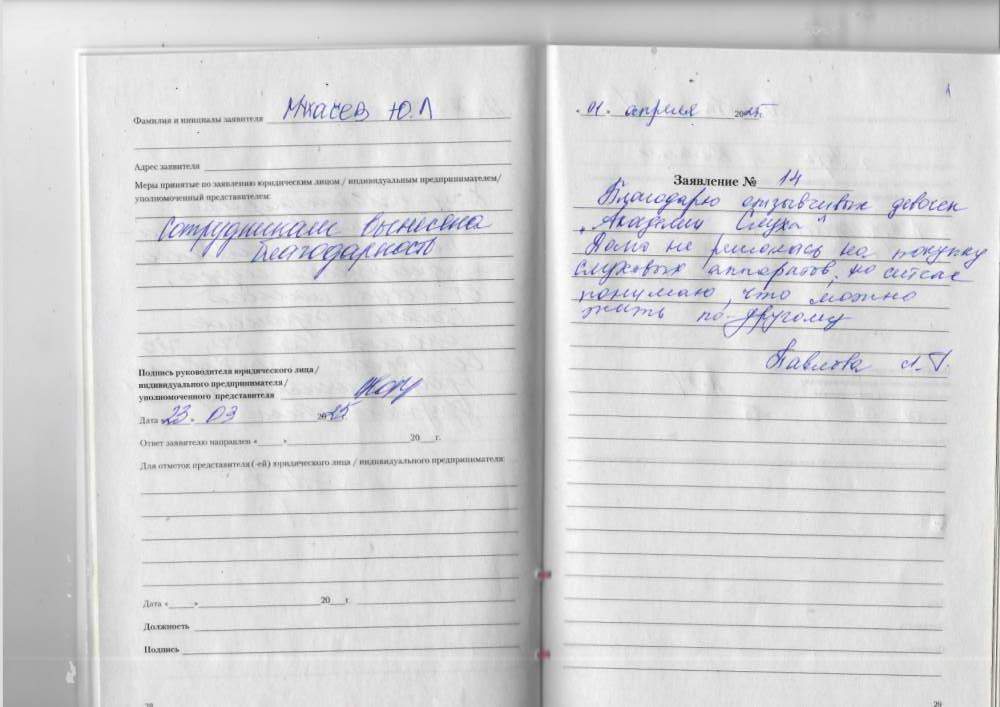 Фамилия и инициалы заявителя Мхасев Ю.Л
Адрес заявителя
Меры принятые по заявлению юридическим лицом / индивидуальным предпринимателем/
уполномоченный представителем:
Сотрудникам вынесена
благодарность
Подпись руководителя юридического лица /
индивидуального предпринимателя /
уполномоченного представителя
Дата 23. 03 2025
Ответ заявителю направлен «____» 20___г.
Для отметок представителя (-ей) юридического лица / индивидуального предпринимателя:
Дата «____» 20___г.
Должность
Подпись
28
01. апреля 2025г.
Заявление № 14
Благодарю отзывчивых девочек
„Академии Слуха"
Долго не решалась на покупку
слуховых аппаратов, но сейчас
понимаю, что можно
жить по-другому
Павлова Л.Г.
29